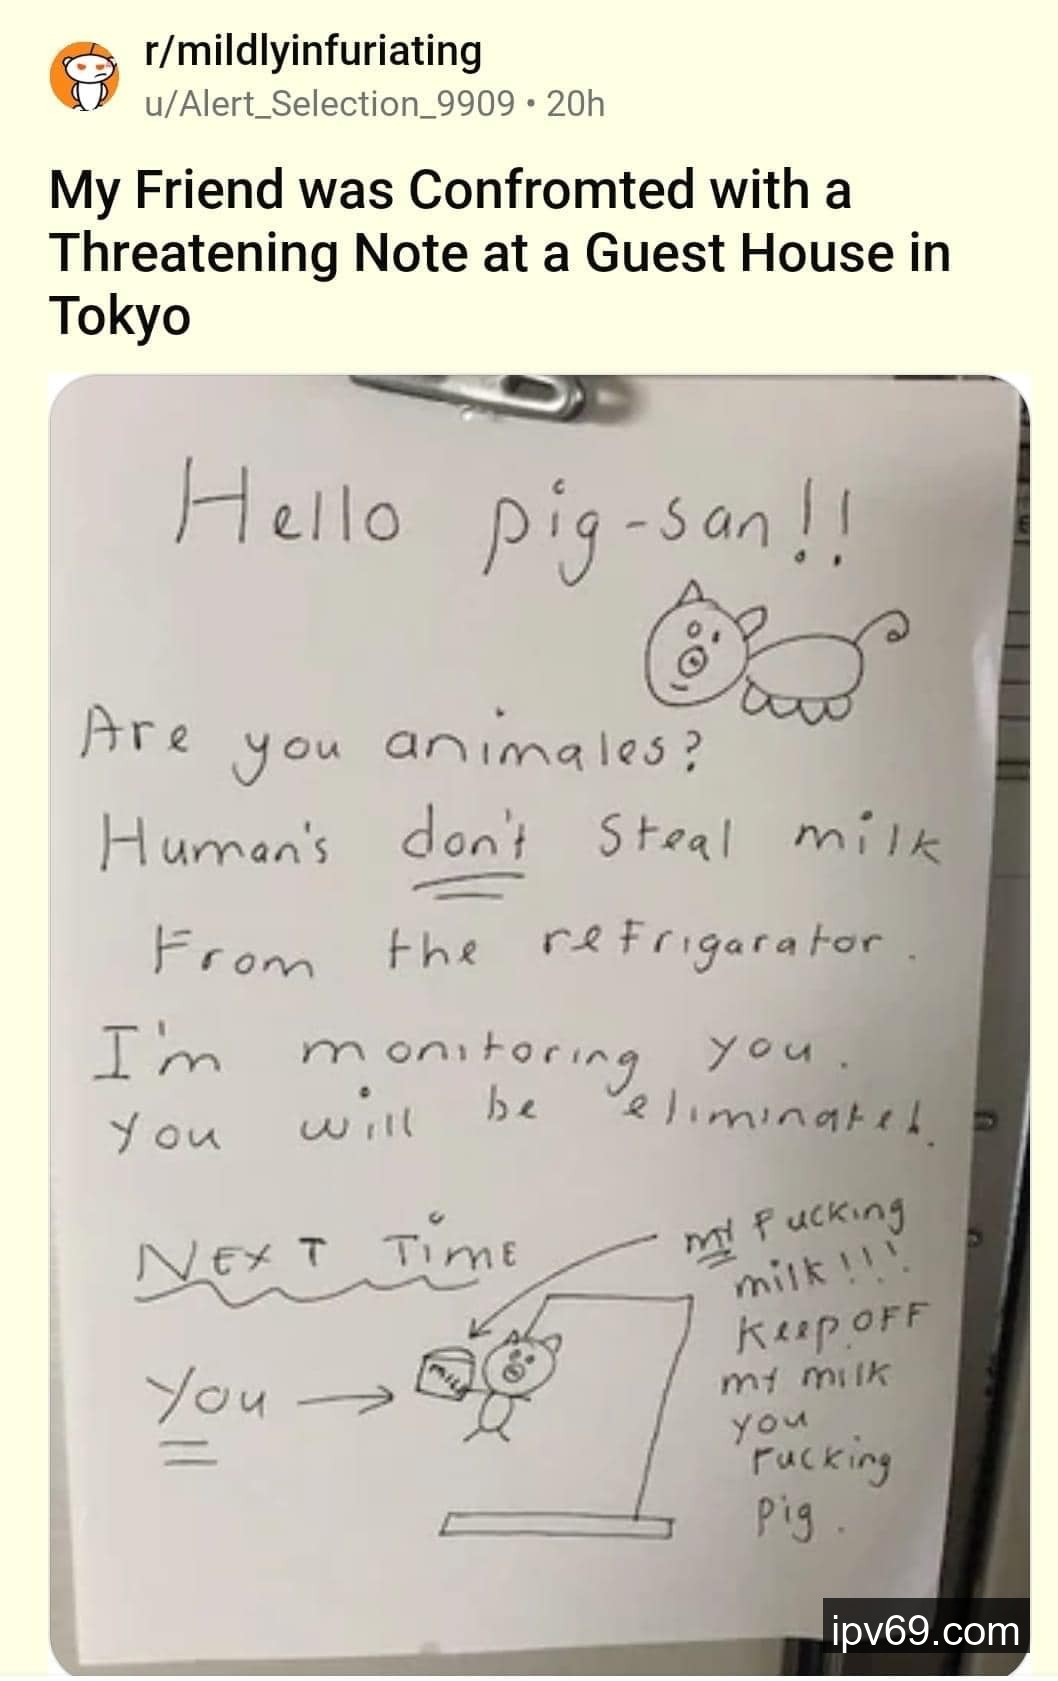 r/mildlyinfuriating
u/Alert_Selection_9909 • 20h
My Friend was Confromted with a
Threatening Note at a Guest House in
Tokyo
Hello pig-san!!
Are you animales?
Human's don't steal milk
From the refrigarator.
I'm monitoring you.
You will be eliminated.
NEXT TIME
You
milk
my Fucking
milk!!!
Keep OFF
my milk
you
Fucking
Pig.
ipv69.com